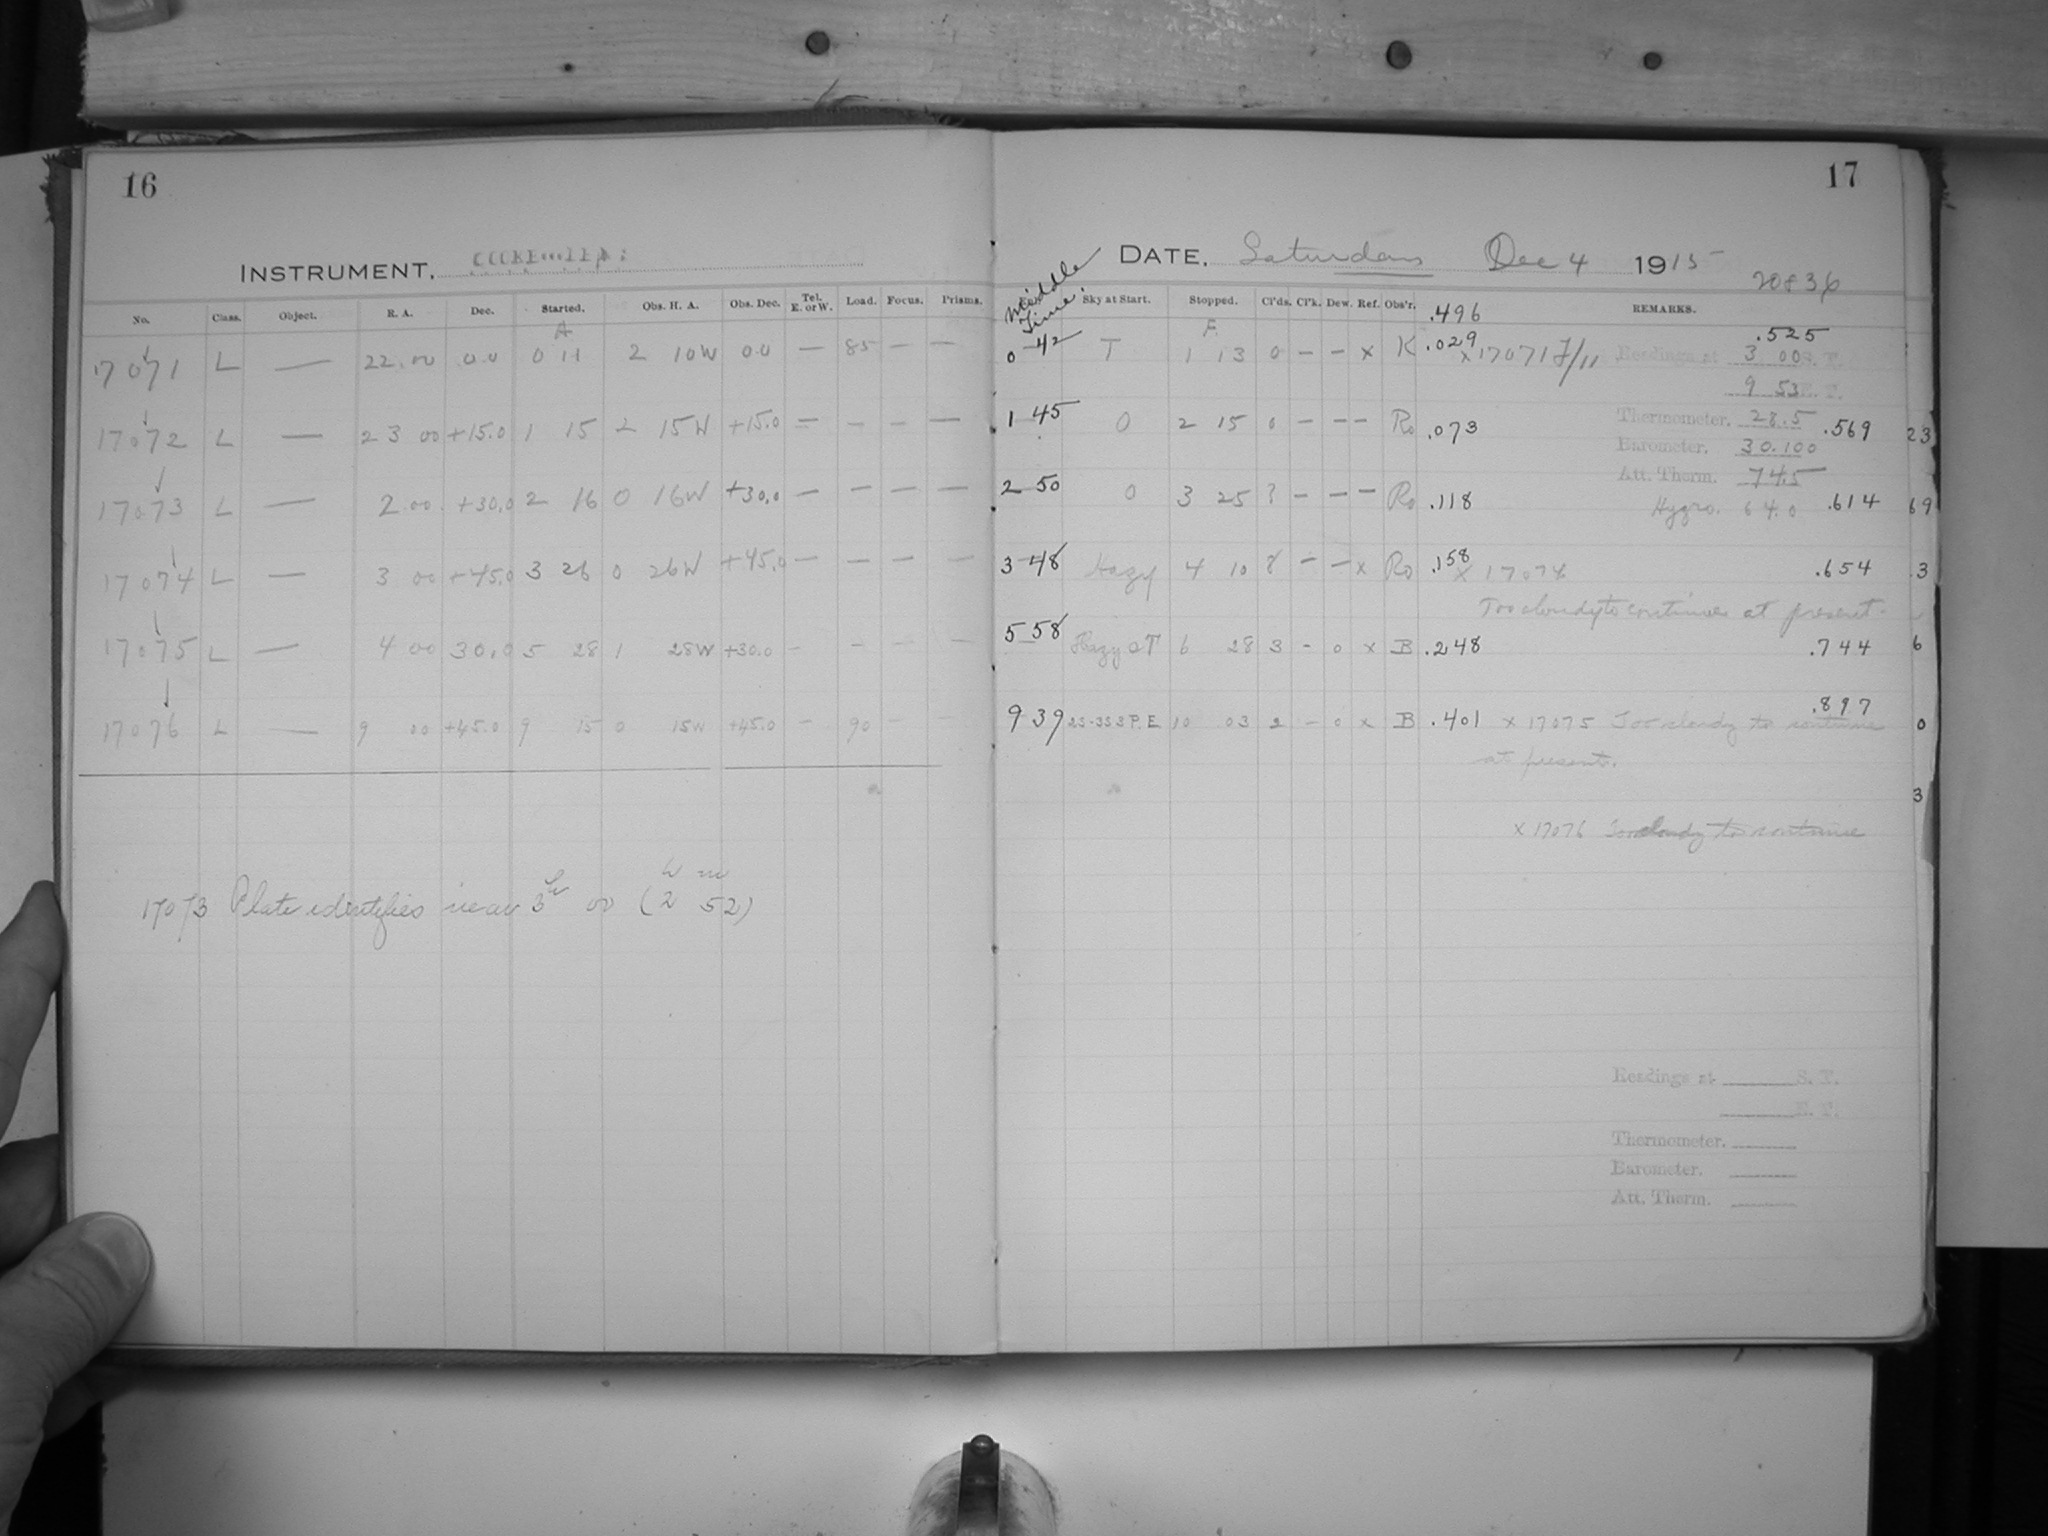 16
INSTRUMENT,
No. Class. Object. R. A. Dec. Started. Obs. H. A. Obs. Dec. Tel. E. or W. Load. Focus. Prisms.
17071 L — 22.00 0.0 0 11 2 10W 0.0 — 85 — —
17072 L — 23 00 +15.0 1 15 2 15W +15.0 — — — —
17073 L — 2.00 +30.0 2 16 0 16W +30.0 — — — —
17074 L — 3 00 +45.0 3 26 0 26W +45.0 — — — —
17075 L — 4 00 30.0 5 28 1 28W +30.0 - - - -
17076 L — 9 00 +45.0 9 15 0 15W +45.0 - 90 - -
17073 Plate identifies near 3h 00 (2h 52m)
17
DATE. Saturday Dec 4 1915
20836
Middle Time. Sky at Start. Stopped. Cl'ds. Cl'k. Dew. Ref. Obs'r. REMARKS.
.496
0 42 T 1 13 0 — — x K .029 x 17071 F/11 .525
Readings at 3 00 S. T.
9 53 E. T.
1 45 0 2 15 0 — — — Ro .073 Thermometer. 28.5 .569 23
Barometer. 30.100
Att. Therm. 74.5
2 50 0 3 25 ? — — — Ro .118 Hygro. 64.0 .614 69
3 48 Hazy 4 10 8 — — x Ro .158 x 17074 .654 3
Too cloudy to continue at present.
5 58 Hazy 6 28 3 - 0 x B .248 .744 6
9 39 10 03 2 - 0 x B .401 x 17075 Too cloudy to continue .897 0
at present.
3
x 17076 Too cloudy to continue
Readings at S. T.
E. T.
Thermometer.
Barometer.
Att. Therm.